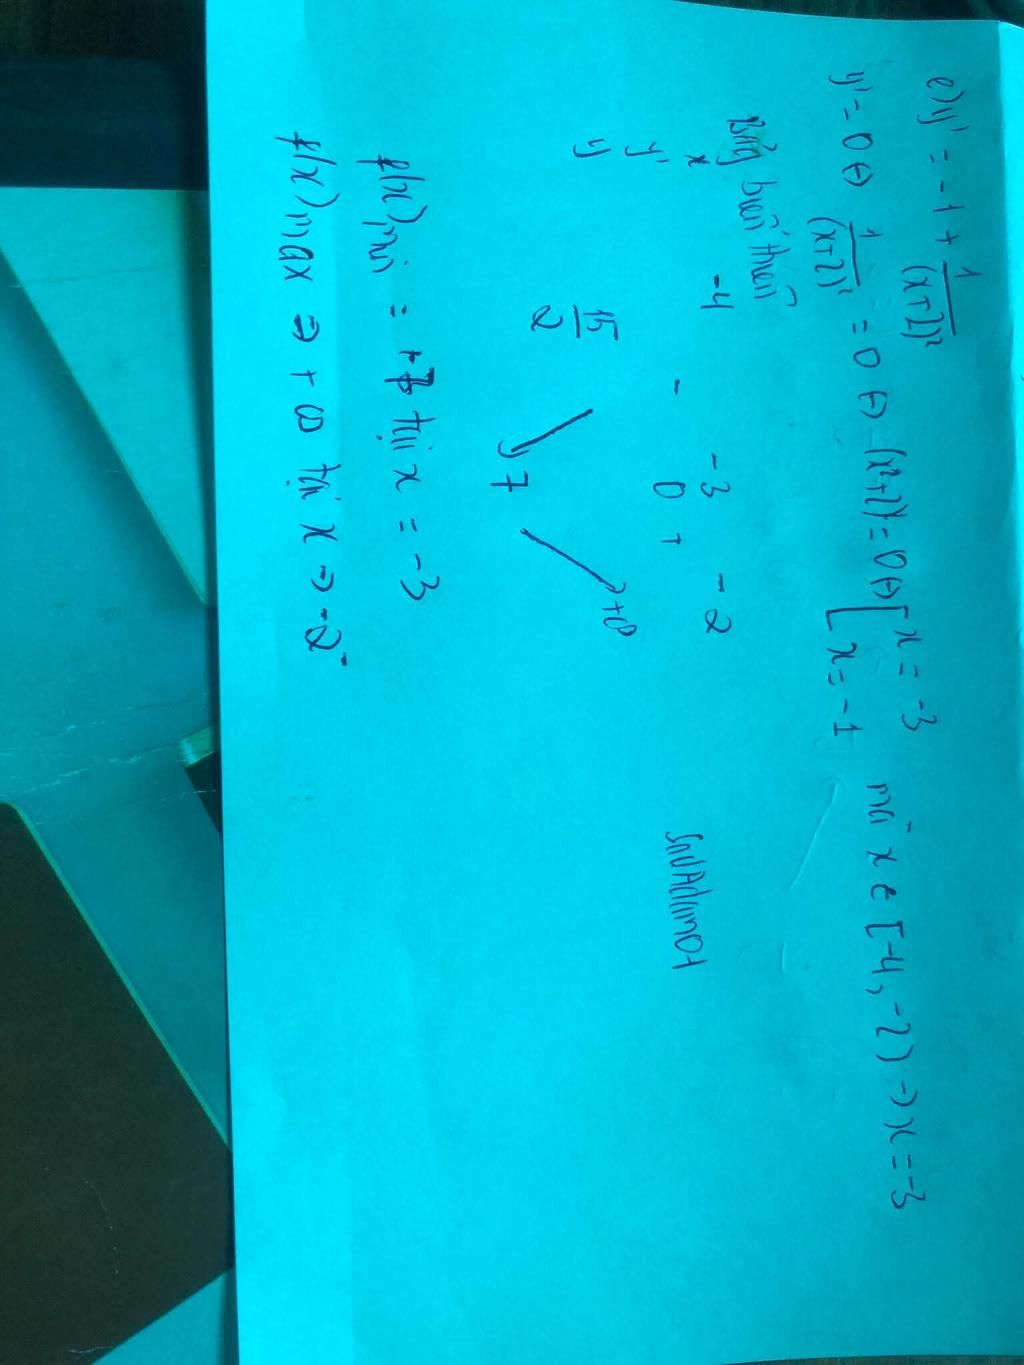 e) y' = -1 + 1/(x+2)²
y' = 0 ⇔ 1/(x+2)² = 0 ⇔ (x²+2)² = 0 ⇔ [ x = -3
x = -1 mà x ∈ [-4, -2) → x = -3
Bảng biến thiên
x -4 -3 -2
y' - 0 +
y 15/2 ↘ 7 ↗ +∞
f(x) min = 7 tại x = -3
f(x) max ⇒ +∞ tại x → -2⁻